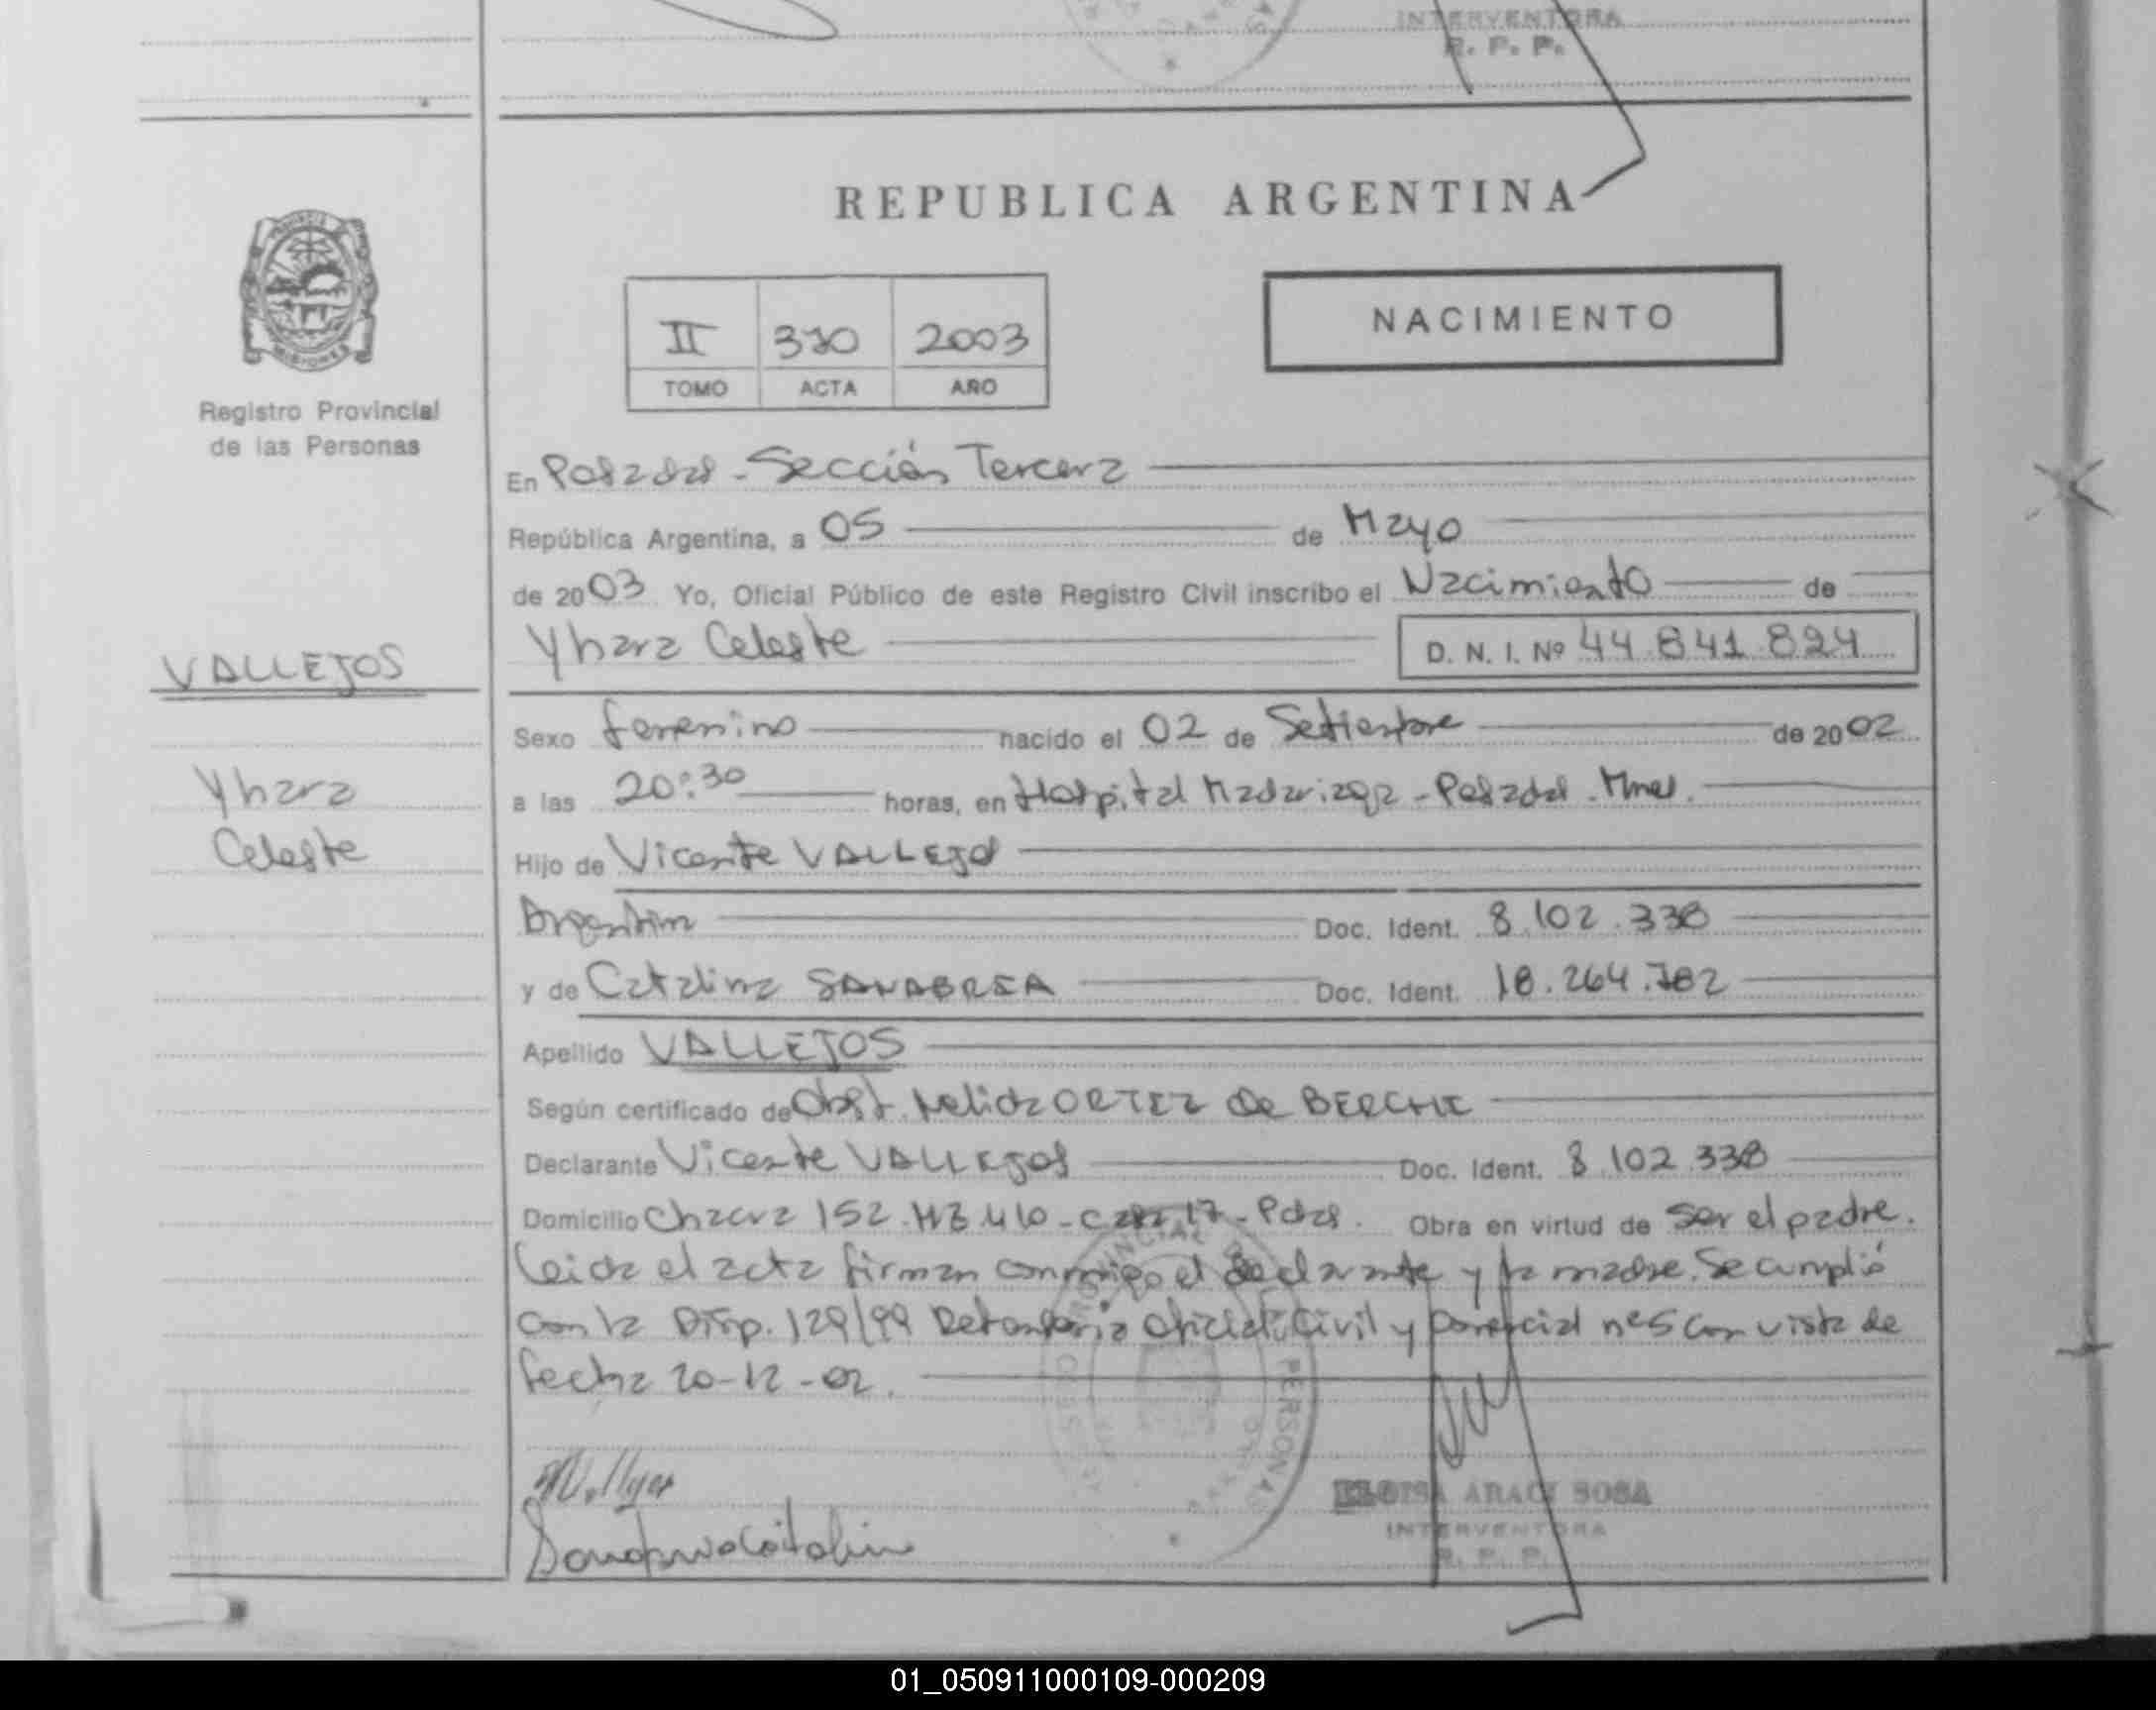 INTERVENTORA
R. P. P.
REPUBLICA ARGENTINA
NACIMIENTO
II 2003
TOMO ACTA AÑO
MISIONES
Registro Provincial
de las Personas
En Posadas - Sección Tercera
República Argentina, a 05 de Mayo
de 2003 Yo, Oficial Público de este Registro Civil inscribo el Nacimiento de
Yhara Celeste D. N. I. Nº 44.841.824
VALLEJOS
Sexo femenino nacido el 02 de Setiembre de 2002
Yhara
a las 20:30 horas, en Hospital Madariaga - Posadas - Mnes.
Celeste
Hijo de Vicente VALLEJOS
Argentino Doc. Ident. 8.102.338
y de Catalina SANABRIA Doc. Ident. 18.264.782
Apellido VALLEJOS
Según certificado de Obst. Nelida ORTIZ de BERCHE
Declarante Vicente VALLEJOS Doc. Ident. 8.102.338
Domicilio Chacra 152 - casa 17 - Pdas. Obra en virtud de ser el padre.
Leida el acta firman conmigo el declarante y la madre. Se cumplió
con la Disp. 129/99 oficial Civil y con vista de
fecha 20-12-02.
PERSONAS
ELOISA ARACI SOSA
INTERVENTORA
R. P. P.
01_050911000109-000209